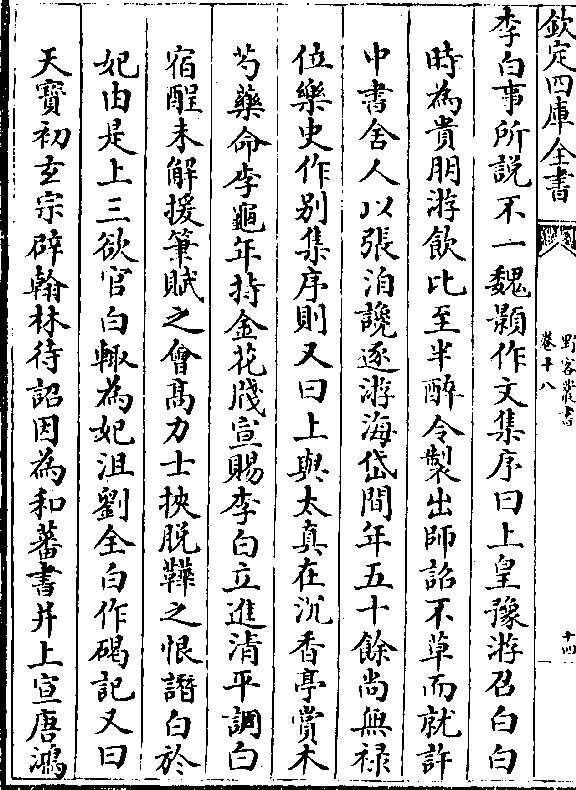 欽定四庫全書
野客叢書
卷十八
十四
李白事所説不一魏顥作文集序曰上皇豫游召白白
時為貴朋游飲比至半醉令製出師詔不草而就許
中書舍人以張洎讒逐游海岱間年五十餘尚無祿
位樂史作别集序則又曰上與太真在沉香亭賞木
芍藥命李龜年持金花牋宣賜李白立進清平調白
宿酲未解援筆賦之會髙力士挾脱鞾之恨譖白於
妃由是上三欲官白輙為妃沮劉全白作碣記又曰
天寳初玄宗辟翰林待詔因為和蕃書并上宣唐鴻